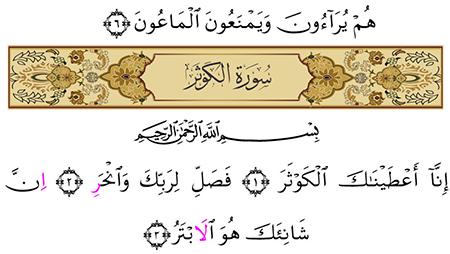 هُمْ يُرَآءُونَ وَيَمْنَعُونَ ٱلْمَاعُونَ ۝٦
سُورَةُ الكَوْثَرِ
بِسْمِ ٱللَّهِ ٱلرَّحْمَٰنِ ٱلرَّحِيمِ
إِنَّآ أَعْطَيْنَٰكَ ٱلْكَوْثَرَ ۝١ فَصَلِّ لِرَبِّكَ وَٱنْحَرِ ۝٢ اِنَّ
شَانِئَكَ هُوَ ٱلَابْتَرُ ۝٣